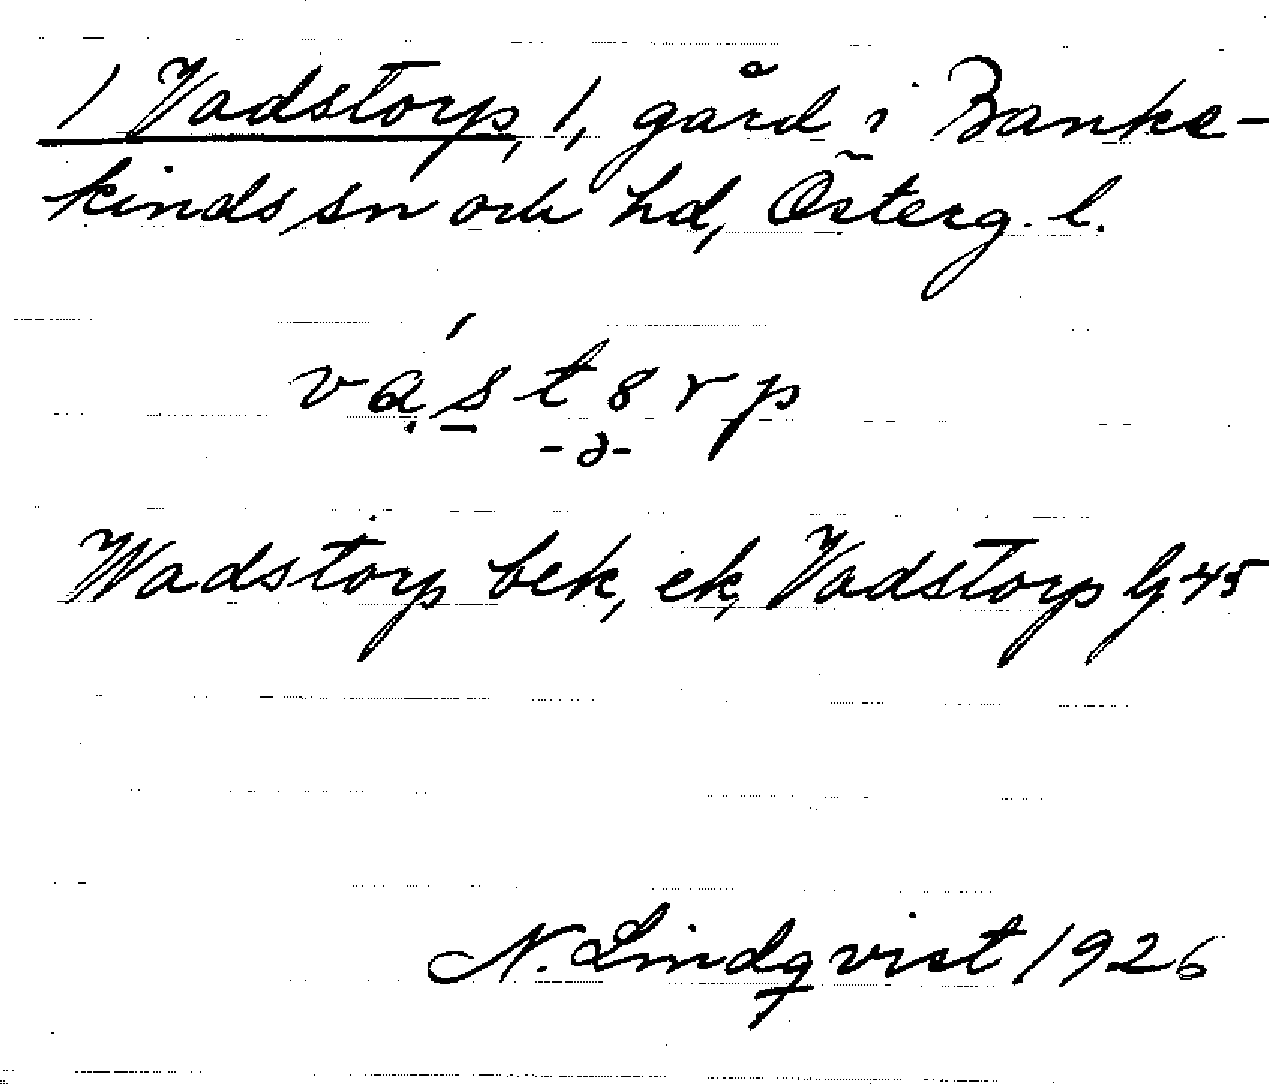 1 Vadstorp, 1, gård i Banke-
kinds sn och hd, Österg. l.
vás t 8 r p
- ə -
Wadstorp bek, ek, Vadstorp lg 45
N. Lindqvist 1926